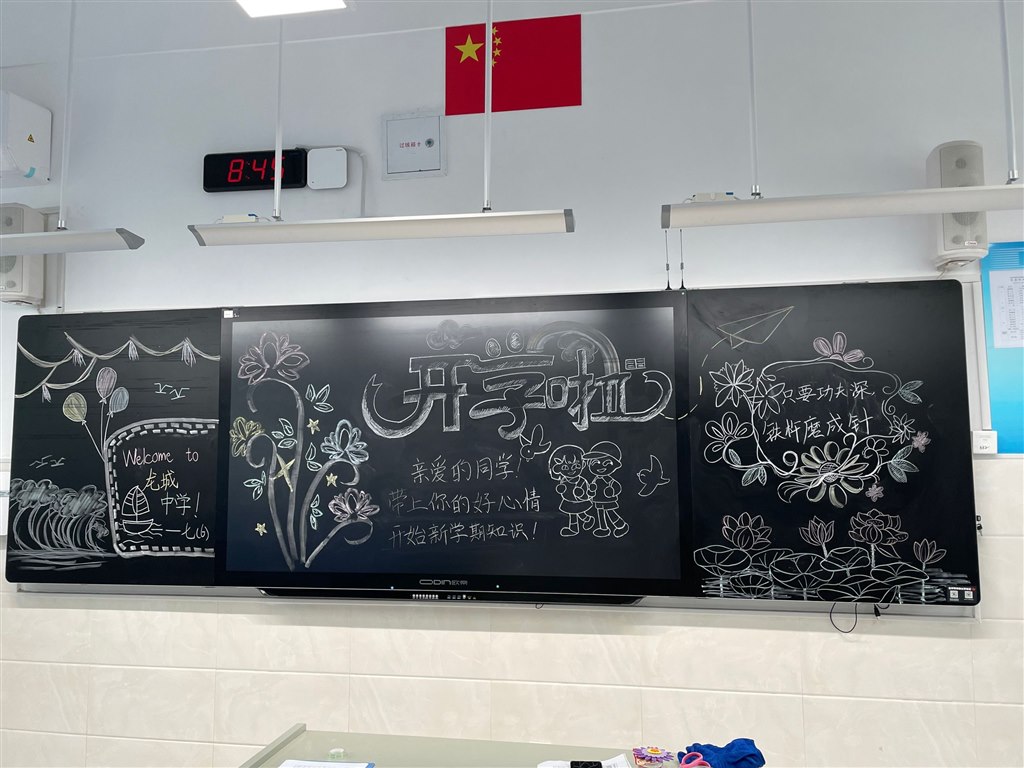 过线箱卡
8:45
Welcome to
龙城
中学!
一七(6)
开学啦
亲爱的同学!
带上你的好心情
开始新学期知识!
只要功夫深,
铁杵磨成针
ODIN欧帝